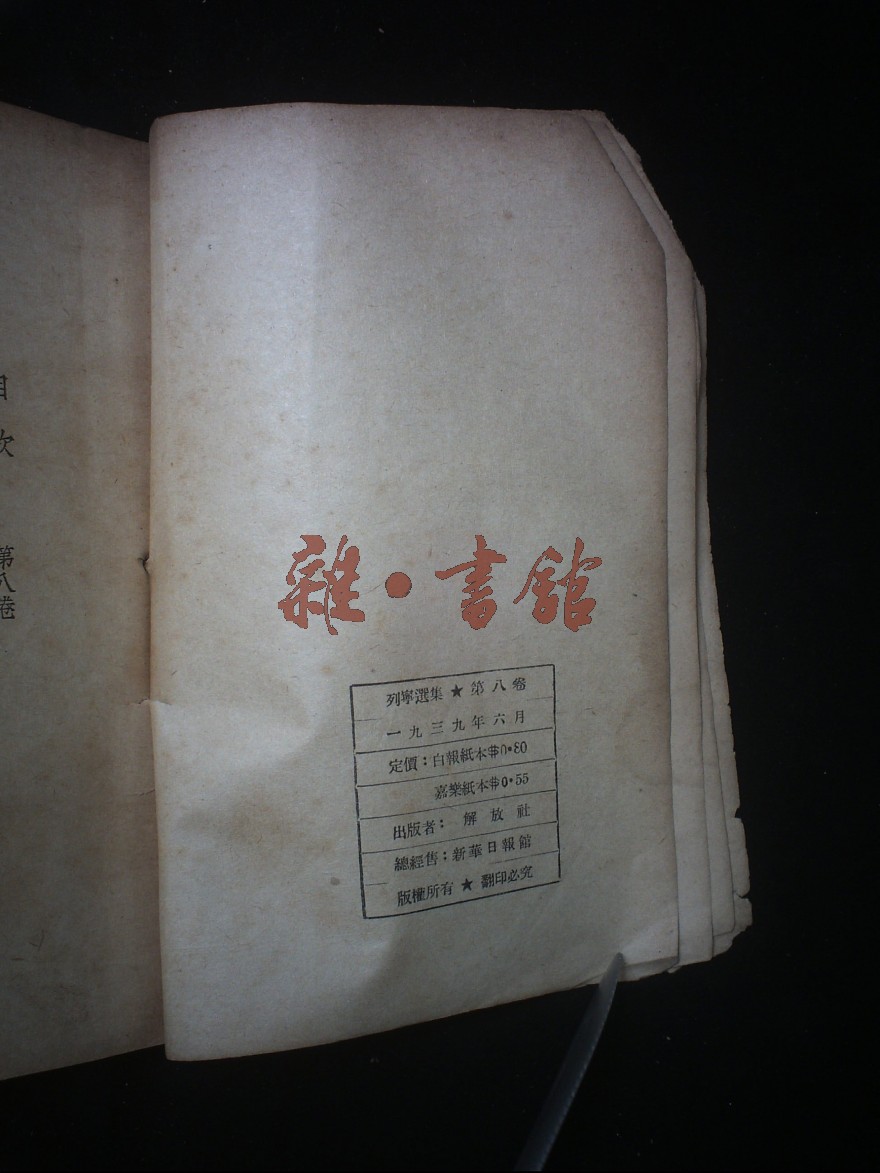 目次
第八卷
雜·書館
列寧選集 ★ 第八卷
一九三九年六月
定價：白報紙本$0·80
嘉樂紙本$0·55
出版者：解放社
總經售：新華日報館
版權所有 ★ 翻印必究